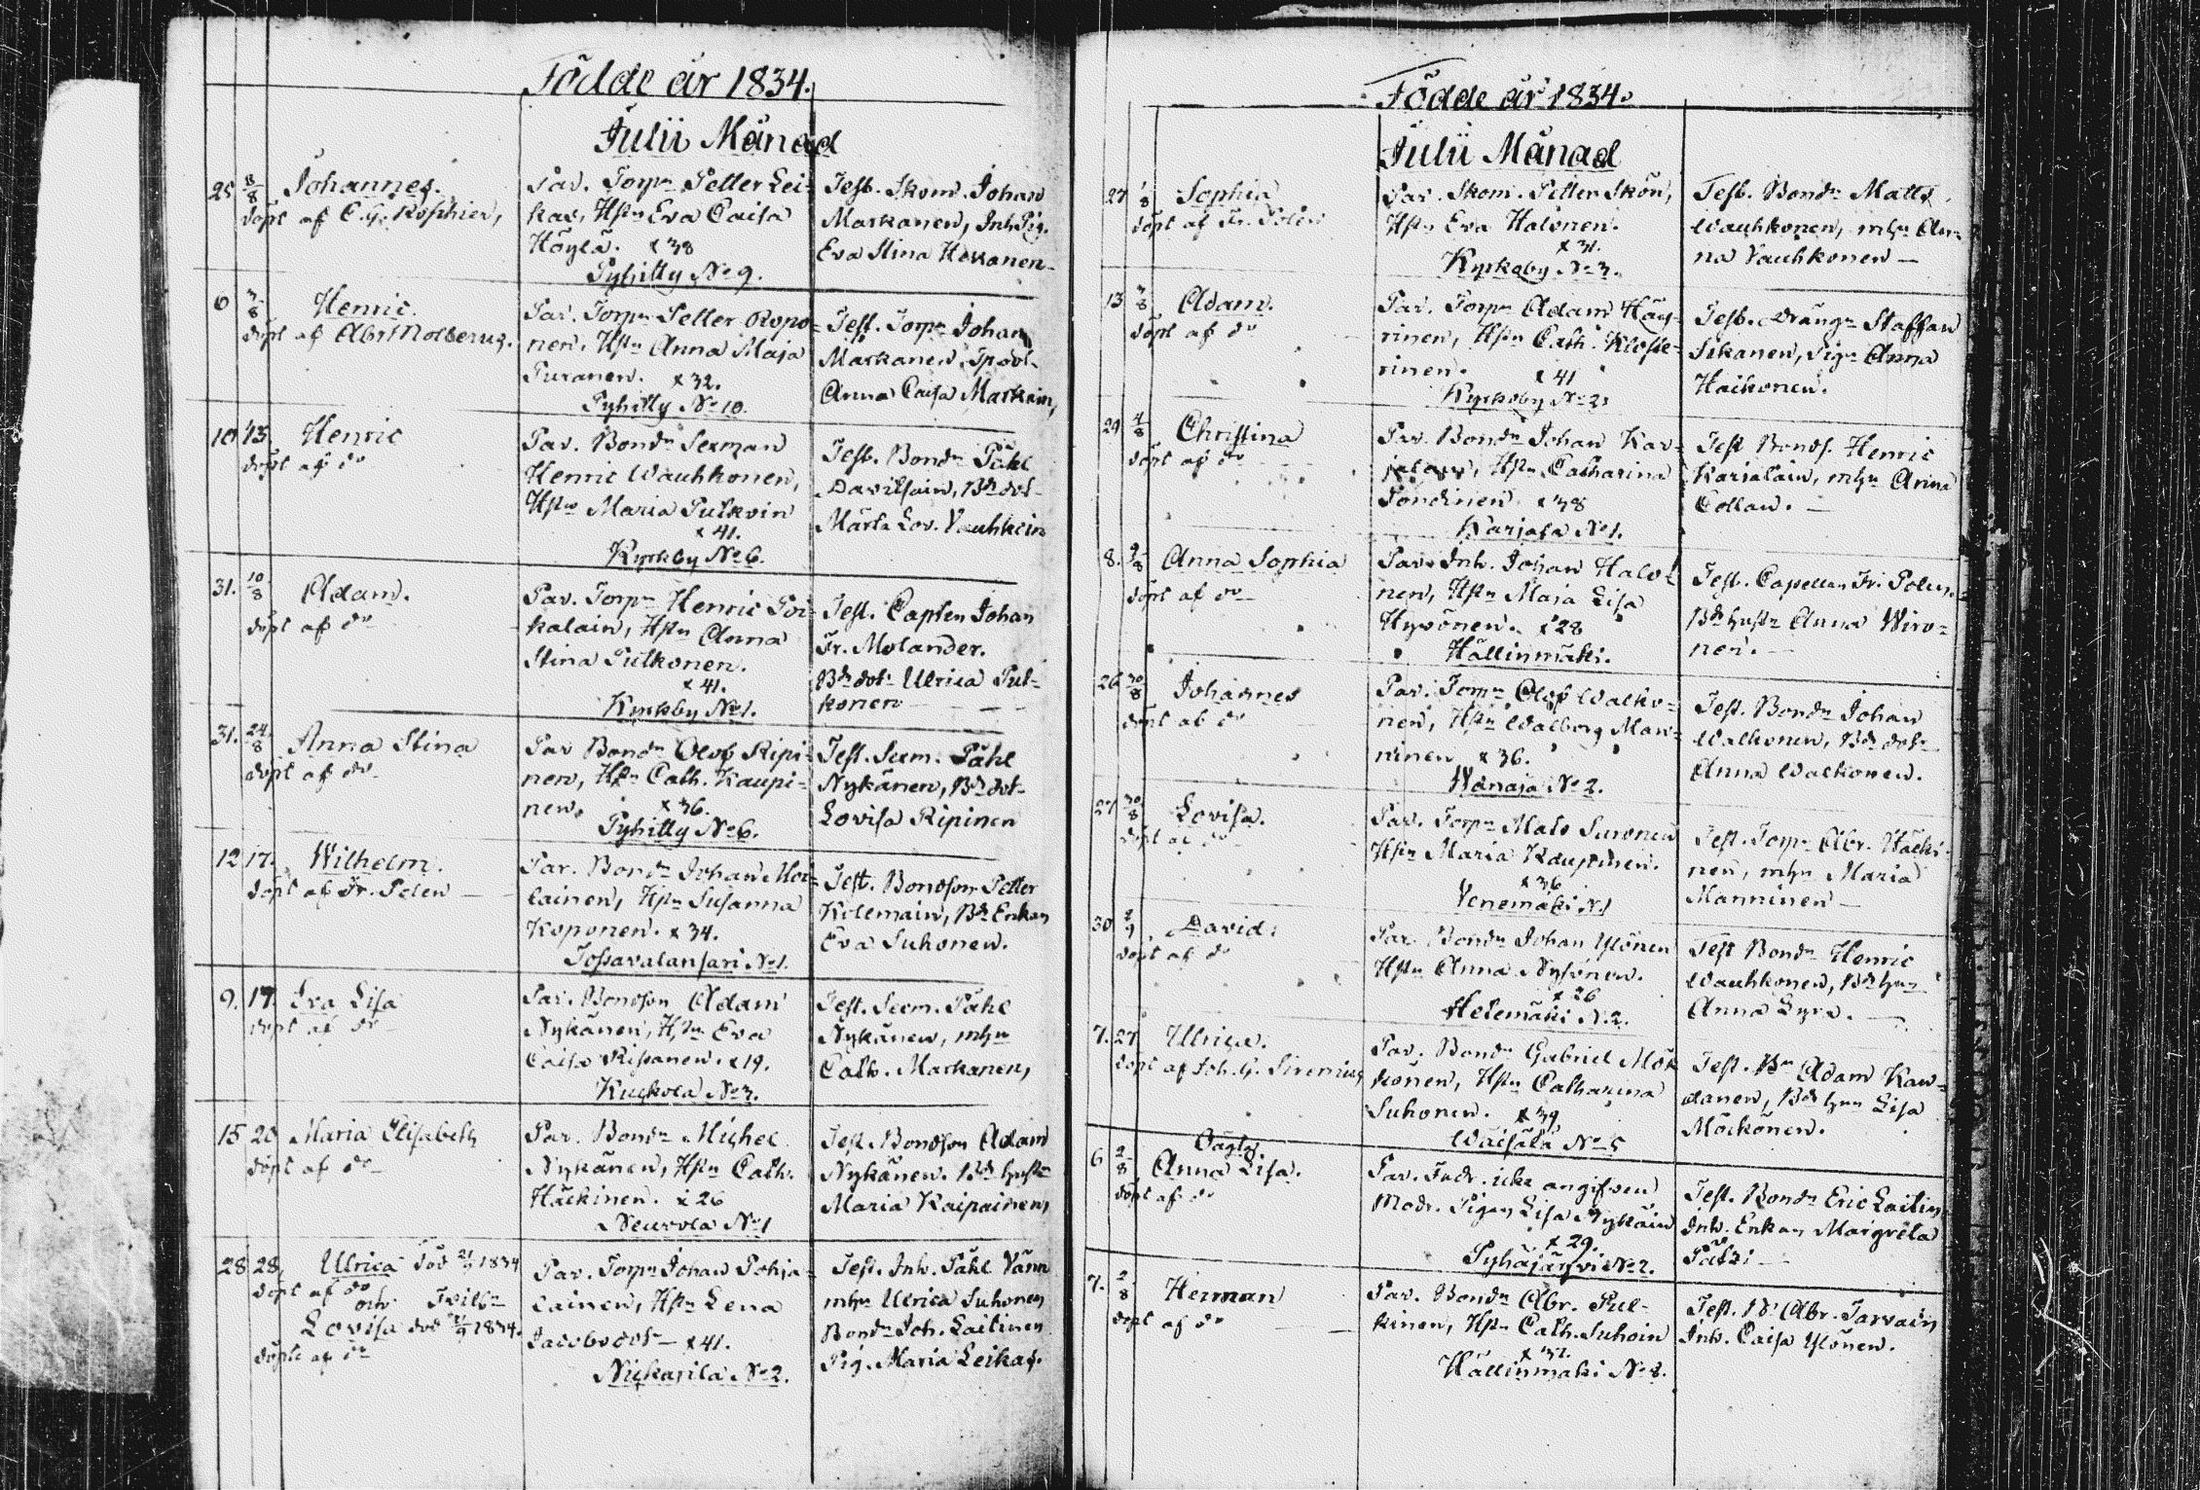 Födde år 1834.
Julii Månad
25 8/8 Johannes.
döpt af C. G. Roschier,
Par. Torpn Petter Lei-
kas, Hstn Eva Caisa
Höylä. x 38
Pyhitty No 9.
Test. Skom. Johan
Markanen, Inh. Pig.
Eva Stina
6 3/8 Henric.
döpt af Abr. Molberus.
Par. Torpn Petter Ropo-
nen, Hstn Anna Maja
Puranen. x 32.
Pyhitty No 10.
Test. Torpn Johan
Markanen,
Anna Caisa Markain,
10 13. Henric
döpt af do
Par. Bondn Sexman
Henric Wauhkonen,
Hstn Maria Pulkoin
x 41.
Kyrkby No 6.
Test. Bondn Påhl
Davidsain, Bd dotr
Märta Lov. Vauhkoin
31. 10/8 Adam.
döpt af do
Par. Torpn Henric Poi-
kalain, Hstn Anna
Stina Pulkonen.
x 41.
Kyrkby No 1.
Test. Capten Johan
Fr. Molander.
Bd dotr Ulrica Pul-
konen
31. 24/8 Anna Stina
döpt af do
Par Bondn Olof Ripi-
nen, Hstn Cath. Kaupi-
nen. x 36.
Pyhitty No 6.
Test. Sexm. Påhl
Nykänen, Bd dotr
Lovisa Ripinen
12 17. Wilhelm.
döpt af Fr. Polen
Par. Bondn Johan Moi-
lainen, Hstn Susanna
Koponen. x 34.
Tossavalansari No 1.
Test. Bondson Petter
Kolemain, Bd Enkan
Eva Suhonen.
9. 17. Eva Lisa
döpt af do
Par. Bondson Adam
Nykänen, Hstn Eva
Caisa Rissanen. x 19.
Kuckola No 3.
Test. Sexm. Påhl
Nykänen, mhn
Cath. Markanen,
15 20 Maria Elisabeth
döpt af do
Par. Bondn Michel
Nykänen, Hstn Cath.
Häckinen. x 26
Neuvola No 1
Test. Bondson Adam
Nykänen. Bd hustr
Maria Kaipainen,
28 28. Ulrica död 21/9 1834
döpt af do
och Tvilln
Lovisa död 21/9 1834.
döpte af do
Par. Torpn Johan Pohja-
lainen, Hstn Lena
Jacobsdotr x 41.
Niskasila No 2.
Test. Inh. Påhl Vänn
mhn Ulrica Suhonen
Bondn Joh. Laitinen
Pig. Maria Leikas.
Födde år 1834.
Julii Månad
27 1/8 Sophia
döpt af Fr. Polén
Par. Skom. Petter Skön,
Hstn Eva Halonen.
x 31.
Kyrkoby No 3.
Test. Bondn Matts
Wauhkonen, mhn An-
na Vauhkonen
13 3/8 Adam.
döpt af do
Par. Torpn Adam Häy-
rinen, Hstn Cath. Kloste-
rinen. x 41
Kyrkoby No 2.
Test. Drängn Staffan
Sikanen, Pign Anna
Haikonen.
29 4/8 Christina
döpt af do
Par. Bondn Johan Kar-
jalain, Hstn Catharina
Pöndinen. x 38
Karjala No 1.
Test Bonds. Henric
Karjalain, mhn Anna
Collan.
8. 9/8 Anna Sophia
döpt af do
Par. Inh. Johan Halo-
nen, Hstn Maja Lisa
Hyvönen. x 28
Hällinmäki.
Test. Capellan Fr. Polen.
Bd hustr Anna Wiro-
nen.
26 30/8 Johannes
döpt af do
Par. Torpn Olof Walko-
nen, Hstn Walborg Man-
ninen x 36.
Wänajä No 2.
Test. Bondn Johan
Walkonen, Bd dotr
Anna Walkonen.
27 30/8 Lovisa.
döpt af do
Par. Torpn Mats Suronen
Hstn Maria Kaupinen.
x 36
Venemäki No 1
Test. Torpn Abr. Häcki-
nen, mhn Maria
Manninen
30 2/9 David.
döpt af do
Par. Bondn Johan Ylönen
Hstn Anna Nysönen.
x 26
Helemäki No 2.
Test Bondn Henric
Wauhkonen, Bd hu
Anna Lyra.
7. 27 Ulrica.
döpt af Joh. G. Sirenius
Par. Bondn Gabriel Mök-
könen, Hstn Catharina
Suhonen. x 39
Waisälä No 5
Test. Bn Adam Kan-
danen, Bd hu Lisa
Möckönen.
6 2/8 Oägta.
Anna Lisa.
döpt af do
Par. Fadr. icke angifven
Modr. Pigan Lisa Nykäin
x 29.
Pyhäjärvi No 2.
Test. Bondn Eric Laitin
Inh. Enkan Margreta
Pätzi
7. 2/8 Herman
döpt af do
Par. Bondn Abr. Pul-
kinen, Hstn Cath. Suhoin
x 32.
Hällinmäki No 8.
Test. Bd Abr. Tarvain
Inh. Caisa Ylönen.